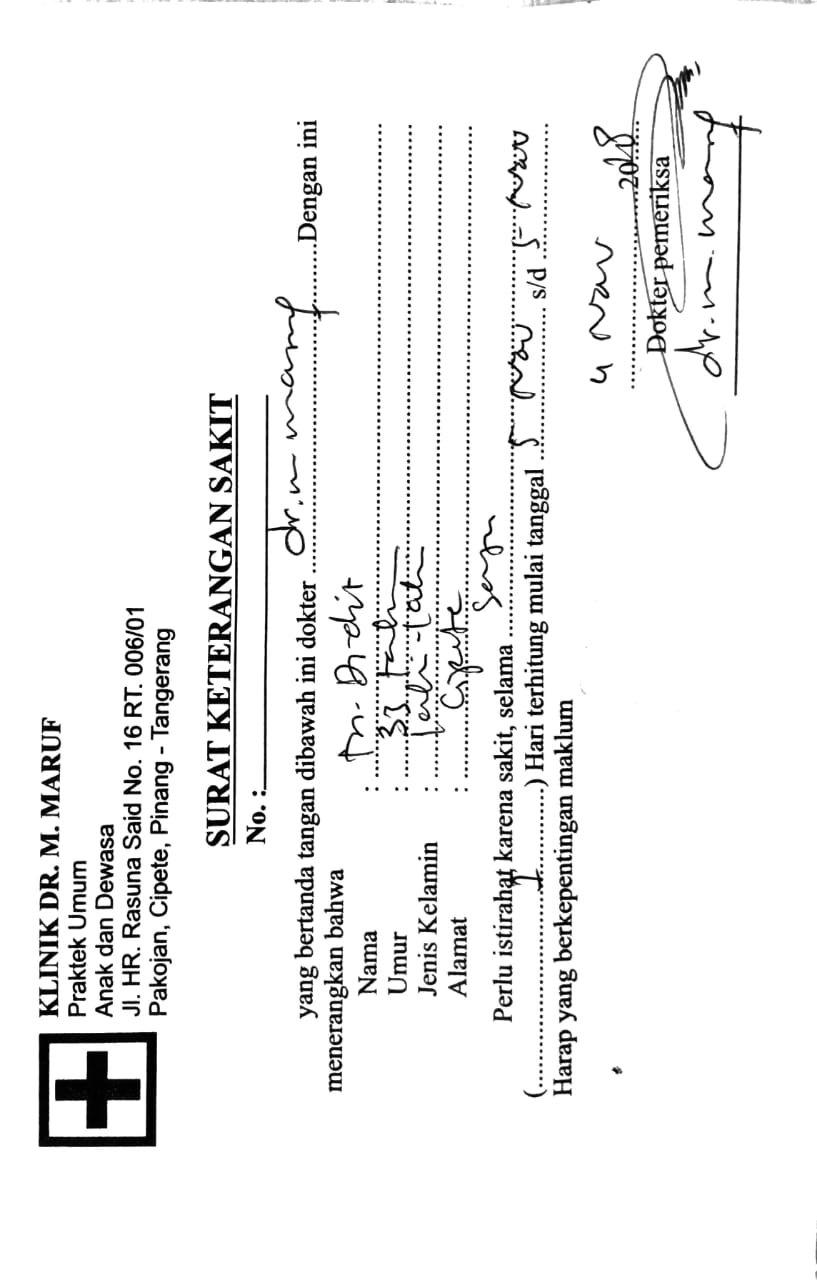 KLINIK DR. M. MARUF
Praktek Umum
Anak dan Dewasa
Jl. HR. Rasuna Said No. 16 RT. 006/01
Pakojan, Cipete, Pinang - Tangerang
SURAT KETERANGAN SAKIT
No. :
yang bertanda tangan dibawah ini dokter dr. m maruf Dengan ini
menerangkan bahwa
Nama : Tn. Didit
Umur : 33 tahun
Jenis Kelamin : laki-laki
Alamat : Cipete
Perlu istirahat karena sakit, selama
(....1....) Hari terhitung mulai tanggal 5 nov s/d 5 nov
Harap yang berkepentingan maklum
4 nov 2018
Dokter pemeriksa
dr. m. maruf